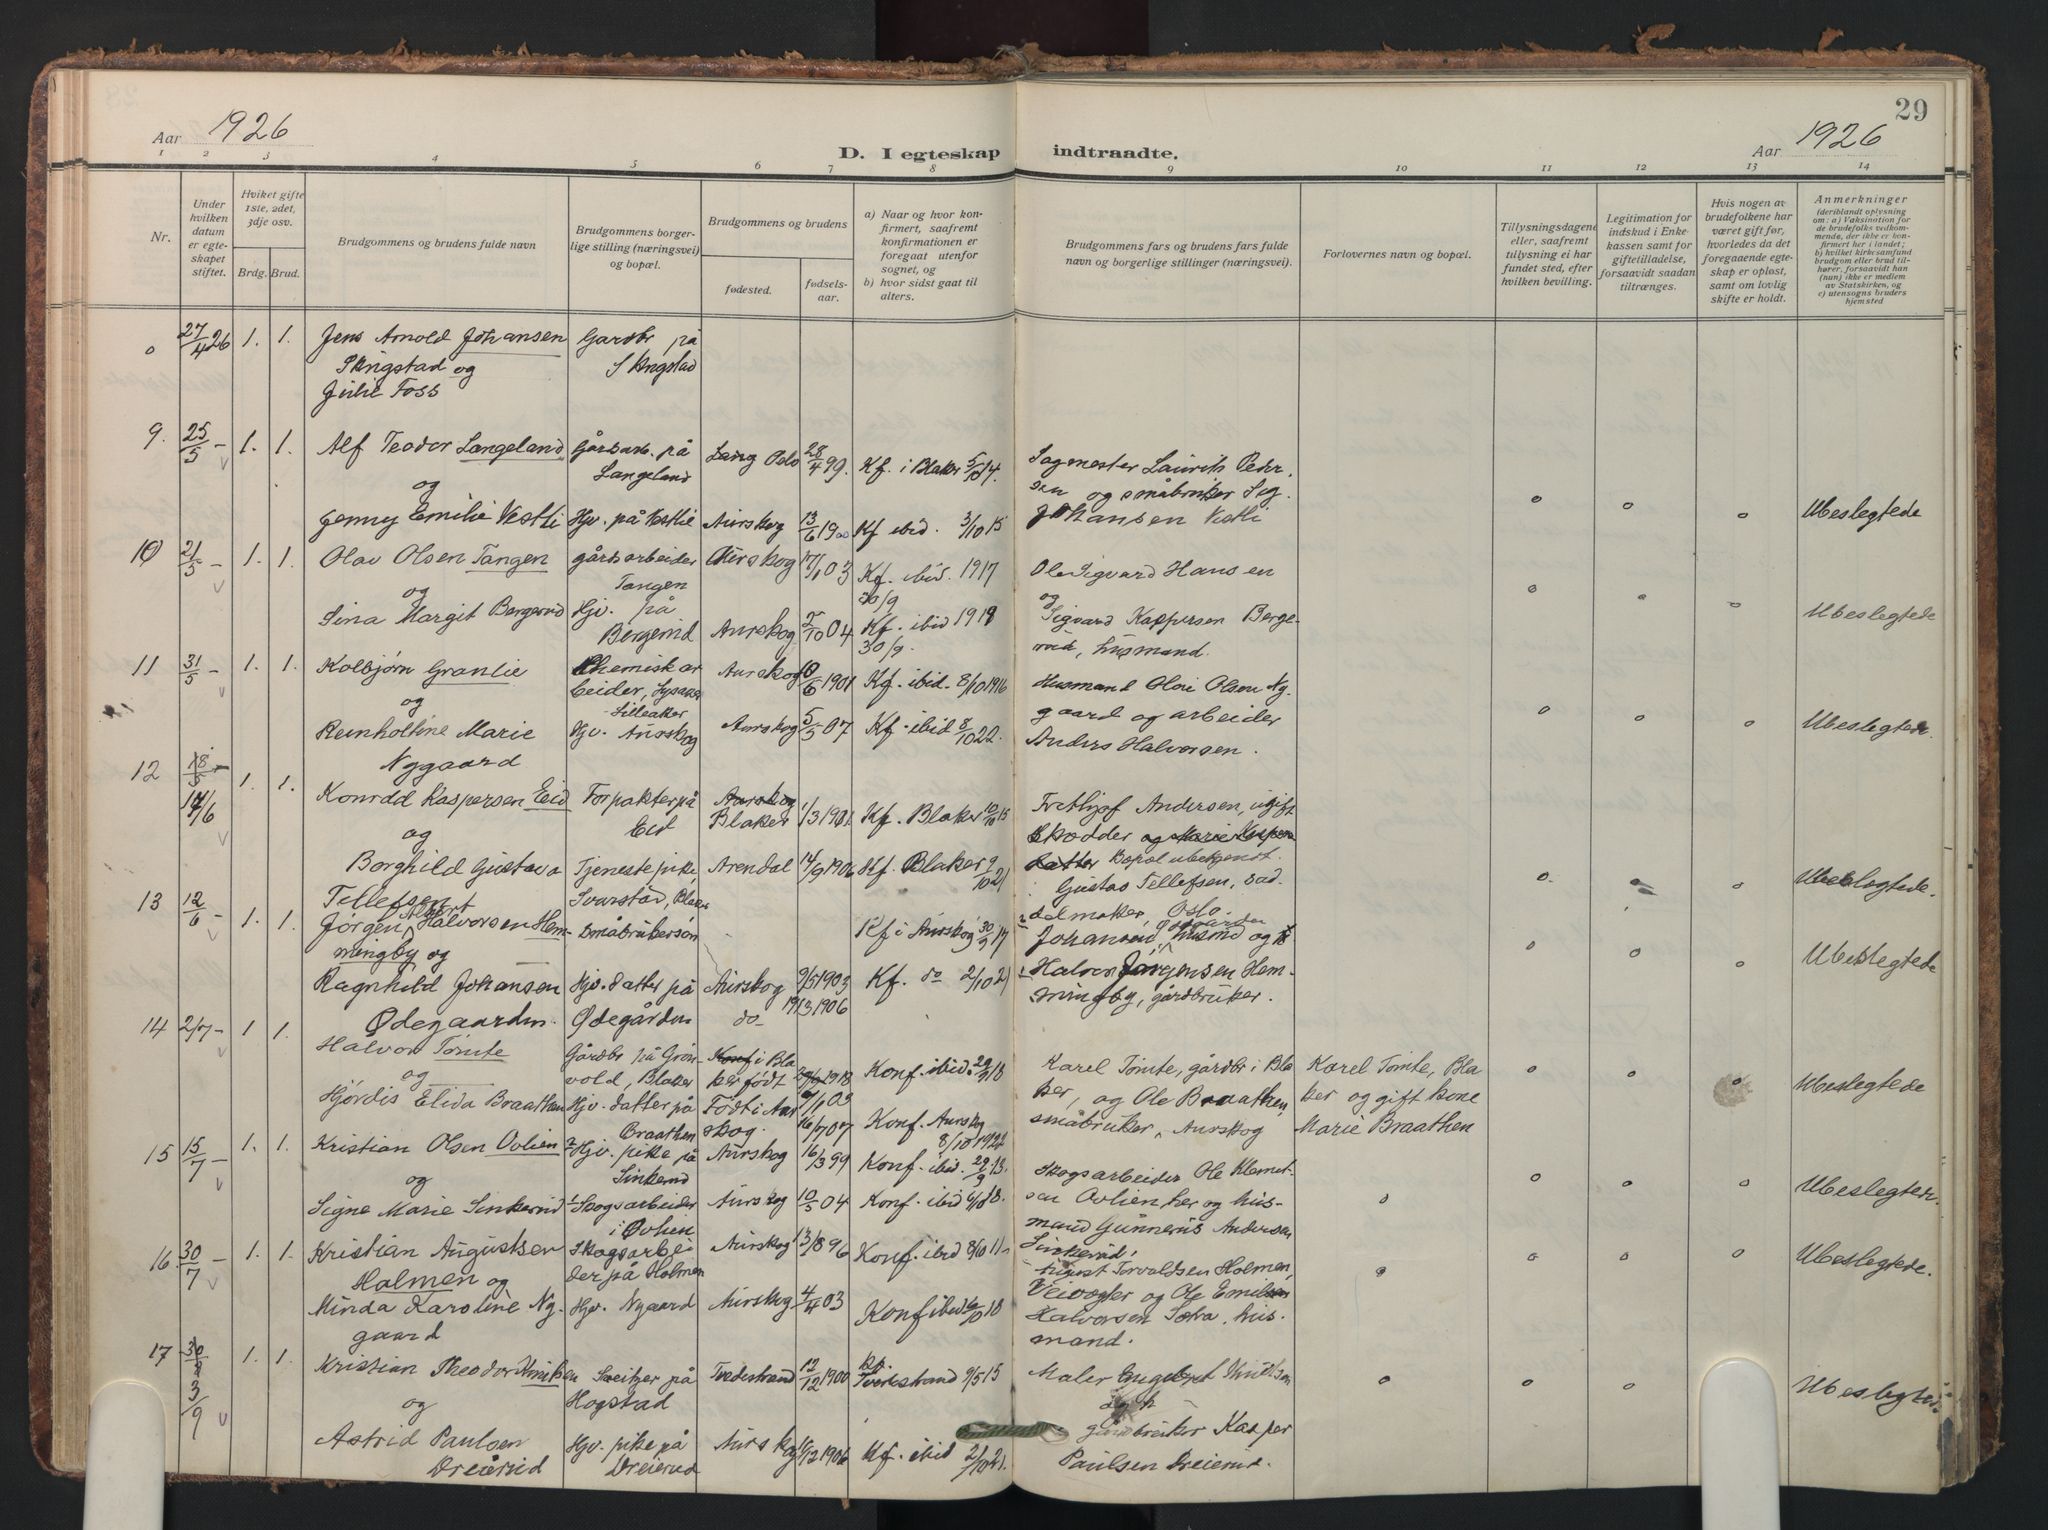 29
Aar 1926
D. I egteskap indtraadte.
Aar 1926
1 2 3 4 5 6 7 8 9 10 11 12 13 14
Nr.
Under hvilken datum er egteskapet stiftet.
Hviket gifte 1ste, 2det, 3dje osv.
Brdg. Brud.
Brudgommens og brudens fulde navn
Brudgommens borgerlige stilling (næringsvei) og bopæl.
Brudgommens og brudens
fødested.
fødselsaar.
a) Naar og hvor konfirmert, saafremt konfirmationen er foregaat utenfor sognet, og
b) hvor sidst gaat til alters.
Brudgommens fars og brudens fars fulde navn og borgerlige stillinger (næringsvei).
Forlovernes navn og bopæl.
Tillysningsdagene eller, saafremt tillysning ei har fundet sted, efter hvilken bevilling.
Legitimation for indskud i Enkekassen samt for giftetilladelse, forsaavidt saadan tiltrænges.
Hvis nogen av brudefolkene har været gift før, hvorledes da det foregaaende egteskap er opløst, samt om lovlig skifte er holdt.
Anmerkninger
(deriblandt oplysning om: a) Vaksination for de brudefolks vedkommende, der ikke er konfirmert her i landet; b) hvilket kirkesamfund brudgom eller brud tilhører, forsaavidt han (nun) ikke er medlem av Statskirken, og c) utensogns bruders hjemsted
o 27/4 26 1. 1. Jens Arnold Johansen Gardbr. på
Skingstad og
Julie Foss
9. 25/5 – 1. 1. Alf Teodor Langeland Gårdarb. på Oslo 28/4 99. Kf. i Blaker 5/10 14. Sagmester Laurits Peder-
Langeland
og
sen og småbruker Sig.
Jenny Emilie Vestli Hjv. på Vestlie Aurskog 13/6 1900 Kf ibid. 3/10 15 Johansen Vestli o o o Ubeslegtede
10 21/5 – 1. 1. Olav Olsen Tangen gårdsarbeider Aurskog 17/1 03 Kf. ibid. 1917 Ole Sigvard Hansen
Tangen 30/9
og og
Sina Margit Bergerud Hjv. på Bergerud Aurskog 2/10 04 Kf. ibid 1918 30/9. Sigvard Kaspersen Berge-
rud, husmand. o o o Ubeslegtede
11 31/5 – 1. 1. Kolbjørn Granlie Chemisk ar
beider, Lysaker Aurskog 10/6 1901 Kf. ibid. 8/10 1916 Husmand Olai Olsen Ny-
Lilleaker
og
gaard og arbeider
Reinholtine Marie Hjv. Aurskog Aurskog 5/5 07 Kf. ibid 8/10 22. Anders Halvorsen. o o o Ubeslegtede.
Nygaard
12 18/5 – 17/6 1. 1. Konrad Kaspersen Eid Forpakter på Eid Aurskog Blaker 1/3 1901. Kf. Blaker 10/10 15 Andersen, ugift
og
Bopæl ubekjent.
Borghild Gustava Tjenestepike, Arendal 14/9 1906 Kf. Blaker 9/10 21 Gustav Tellefsen, sad-
Tellefsen Svarstad, Blaker
delmaker, Oslo o o Ubeslegtede.
13 12/6 – 1. 1. Jørgen Albert Halvorsen Hem- Småbrukersøn Kf i Aurskog 30/9 17 Johansen husmd og
mingby og
Ragnhild Johansen Hjv. datter på Aurskog 9/5 1903 Kf. do 2/10 21 Halvor Jørgensen Hem-
Ødegaarden. Ødegården do 19/3 1906 mingby, gårdbruker. o o o Ubeslegtede
14 2/7 – 1 1. Halvor Tømte Gårdbr på Grøn- Konf i Bla
vold, Blaker ker født Konf. ibid. 29/9 18 Karel Tømte, gårdbr i Bla Karel Tømte, Bla o o o Ubeslegtede
og
ker, og Ole Braathen, ker og gift kone
Hjørdis Elida Braathen Hjv. datter på Født i Aur
Braathen skog. 16/7 07 Konf. Aurskog 8/10 1922 småbruker, Aurskog Marie Braathen
15 15/7 – 1. 1. Kristian Olsen Ovlien 2 Hjv. pike på Aurskog 16/3 99 Konf. ibid. 29/9 13. Skogsarbeider Ole Klemet-
Sinkerud
og
sen Ovlien, her og hus-
Signe Marie Sinkerud 1 Skogsarbeider Aurskog 10/5 04 Konf. ibid 6/10 18. mand Gunnerius Andersen
i Ovlien Sinkerud. o o o o Ubeslegtede.
16. 30/7 1. 1. Kristian Augustsen Skogsarbei Aurskog 13/8 96 Konf. ibid 8/10 11 August Torvaldsen Holmen,
Holmen og der på Holmen
Veivogter og Ole Emilsen
Minda Karoline Ny- Hjv. Nygaard Aurskog 4/4 03 Konf ibid 6/10 18 Halvorsen Sætra, hus-
gaard
mand. o o o o Ubeslegtede.
17 3/9 1. 1. Kristian Theodor Knutsen Sveitser på Tvedestrand 12/12 1900 Kf. Tvedestrand 9/5 15 Maler Engebret Knutsen
Hogstad
og
gårdbruker Kasper
Astrid Paulsen Hjv. pike på Aurskog 1906 Kf. ibid 2/10 21. Paulsen Dreierud.
Dreierud Dreierud o o o Ubeslegtede